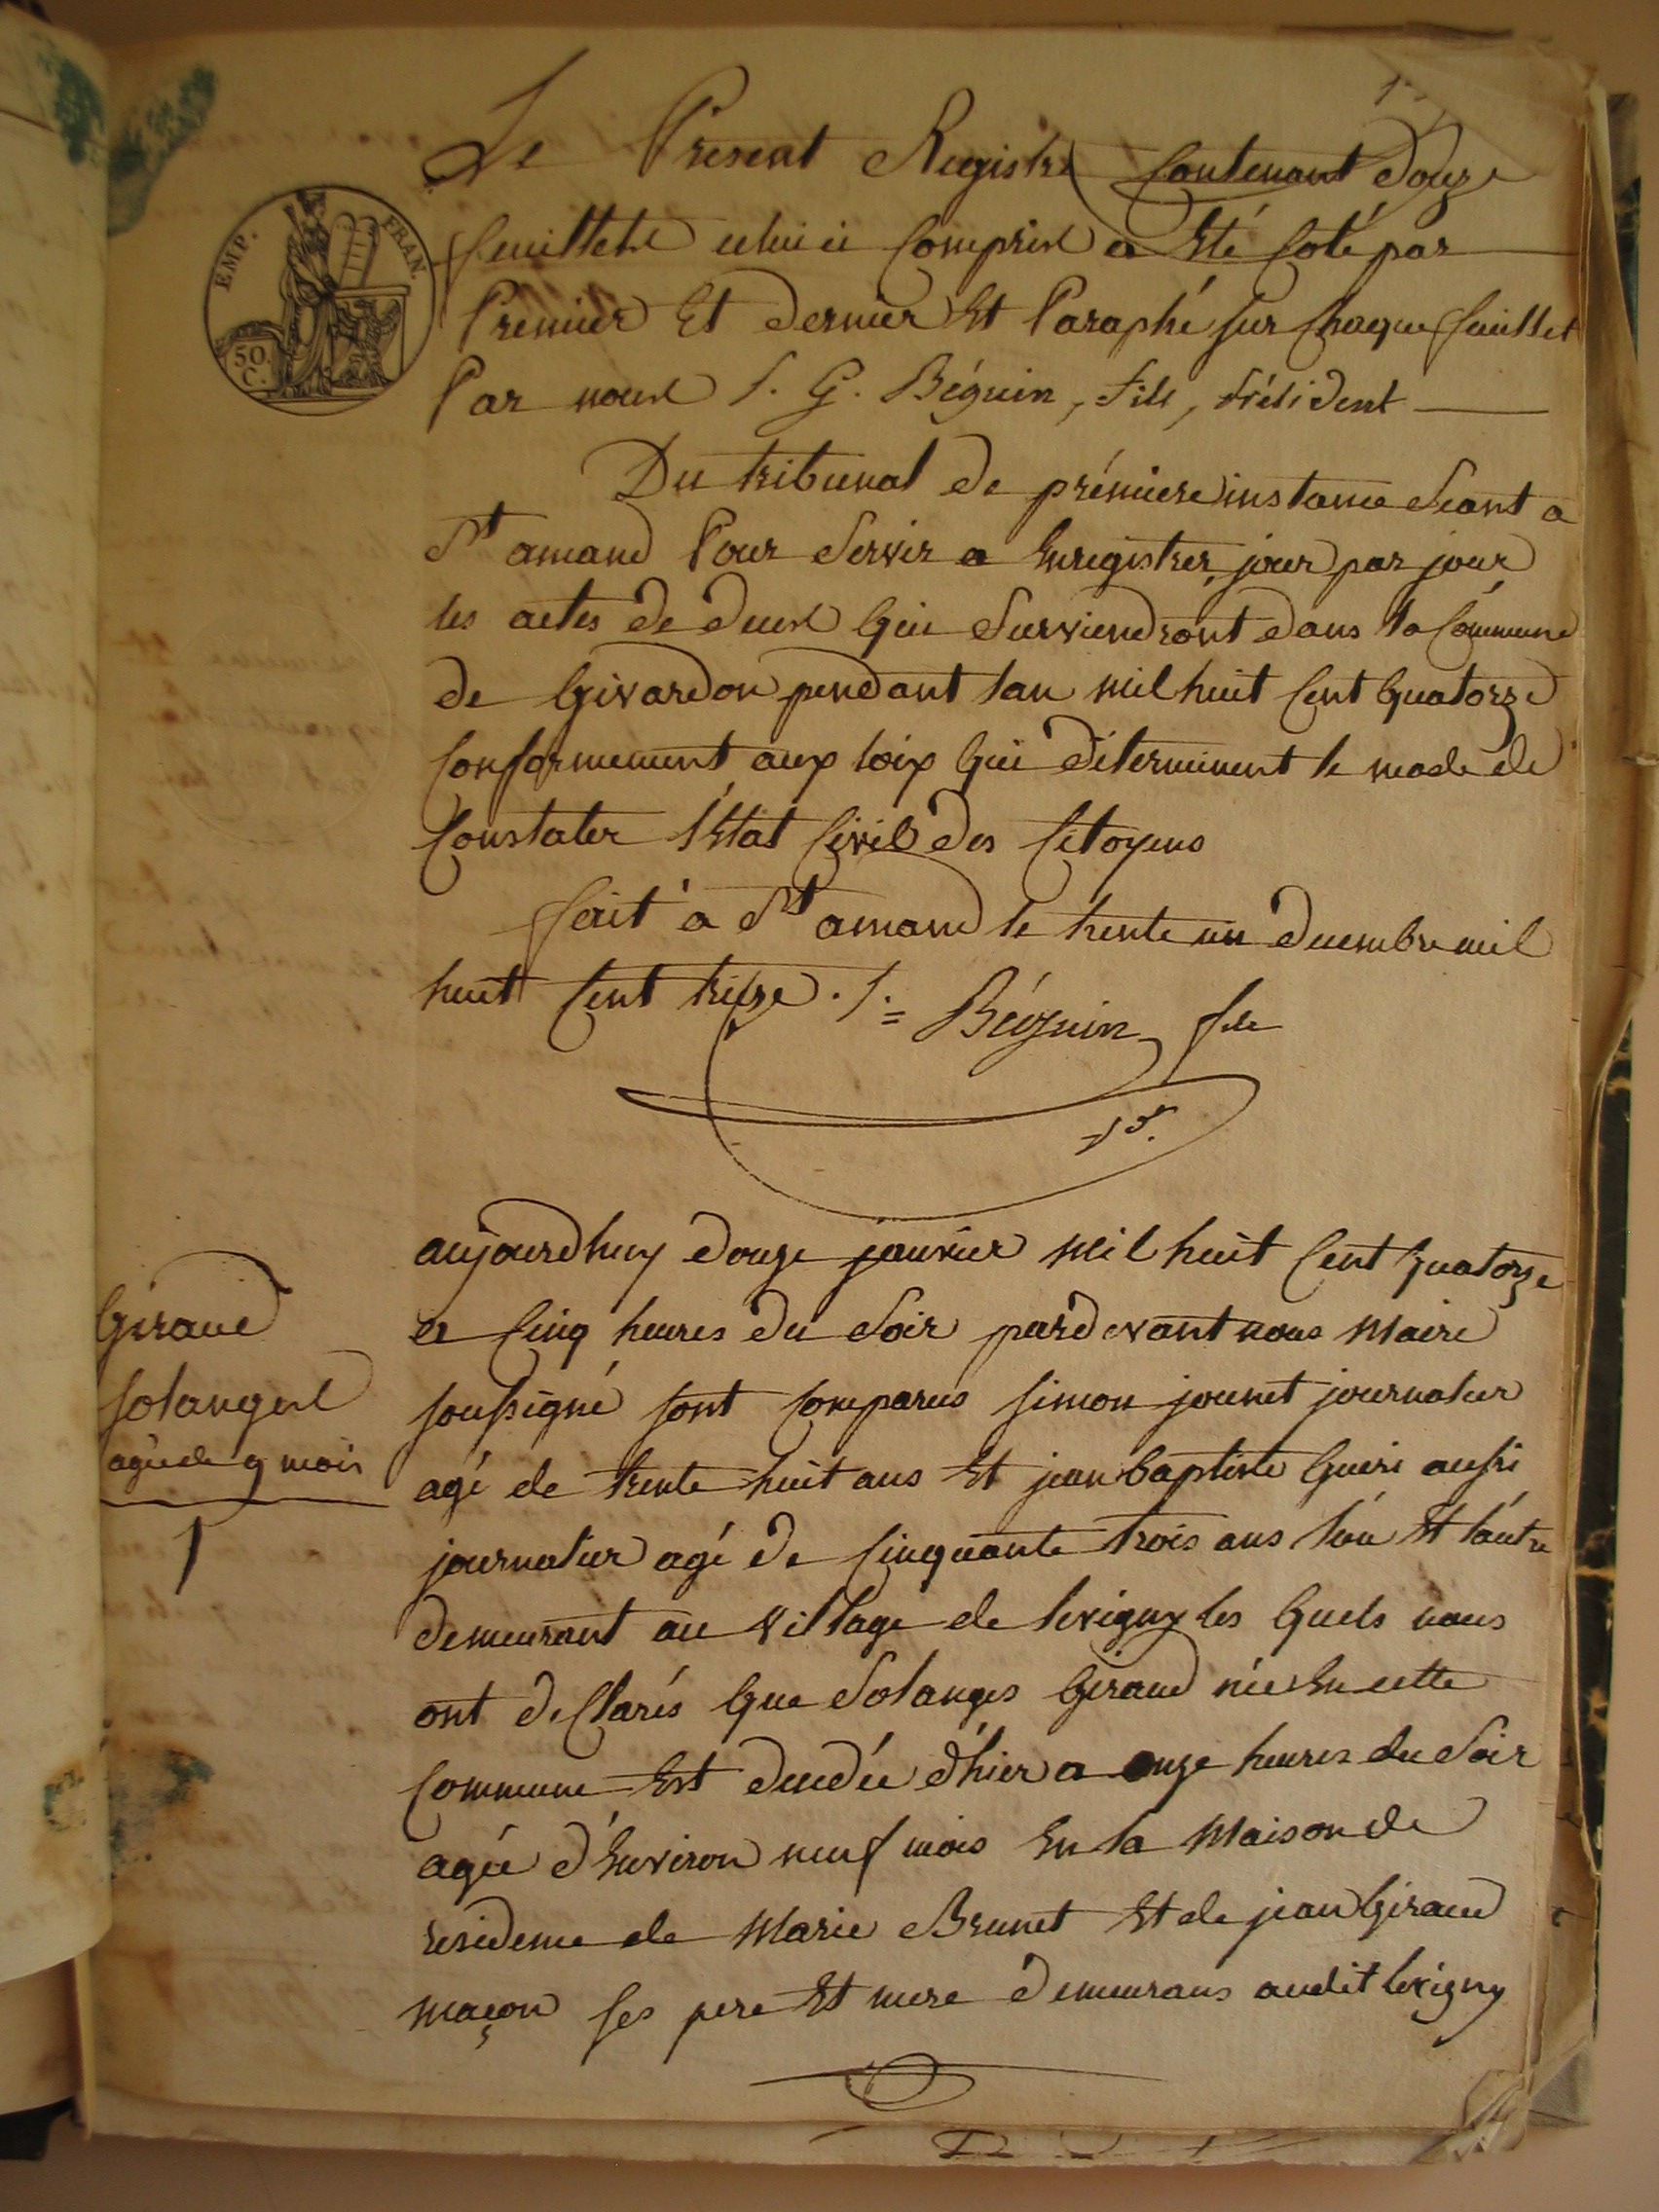 1.
Le Present Registre Contenant douze
feuillets celui ci Compris a Eté Coté par
Premier Et dernier Et Paraphé sur Chaque feuillet
Par nous S. G. Béguin, fils, Président
EMP. FRAN.
50. C.
Du tribunal de prémiere instance Séant a
St amand Pour Servir a Enregistrer jour par jour
les actes de deces Qui Surviendront dans la Commune
de Givardon pendant lan mil huit Cent Quatorze
Conformement aux loix Qui déterminent le mode de
Constater l'Etat Civil des Citoyens
fait a St amand le trente un decembre mil
huit Cent treize . S. Béguin fils
Giraud
Solanges
agée de 9 mois
1
aujourdhuy douze janvier mil huit Cent Quatorze
a Cinq heures du Soir pardevant nous Maire
soussigné sont Comparus simon jounet journalier
agé de trente huit ans Et jean baptiste Gueri aussi
journalier agé de Cinquante trois ans l'un Et l'autre
demeurant au village de levigny les Quels nous
ont deClarés Que Solanges Giraud née En cette
Commune Est decedée d'hier a onze heures du Soir
agée d'Environ neuf mois En la Maison de
residence de Marie Brunet Et de jean Giraud
maçon ses pere Et mere demeurans audit levigny